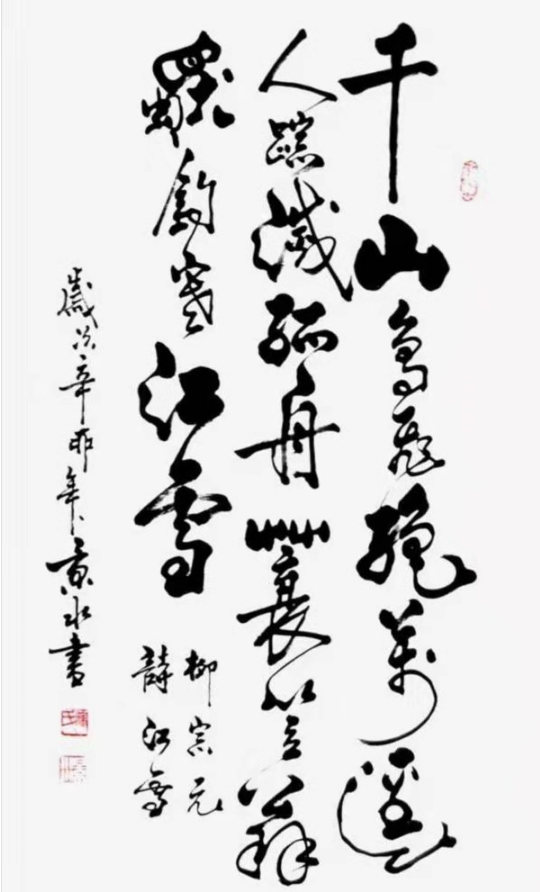 千山鳥飛絕萬逕
人蹤滅孤舟蓑笠翁
獨釣寒江雪
柳宗元
詩江雪
歲次辛卯年景水書